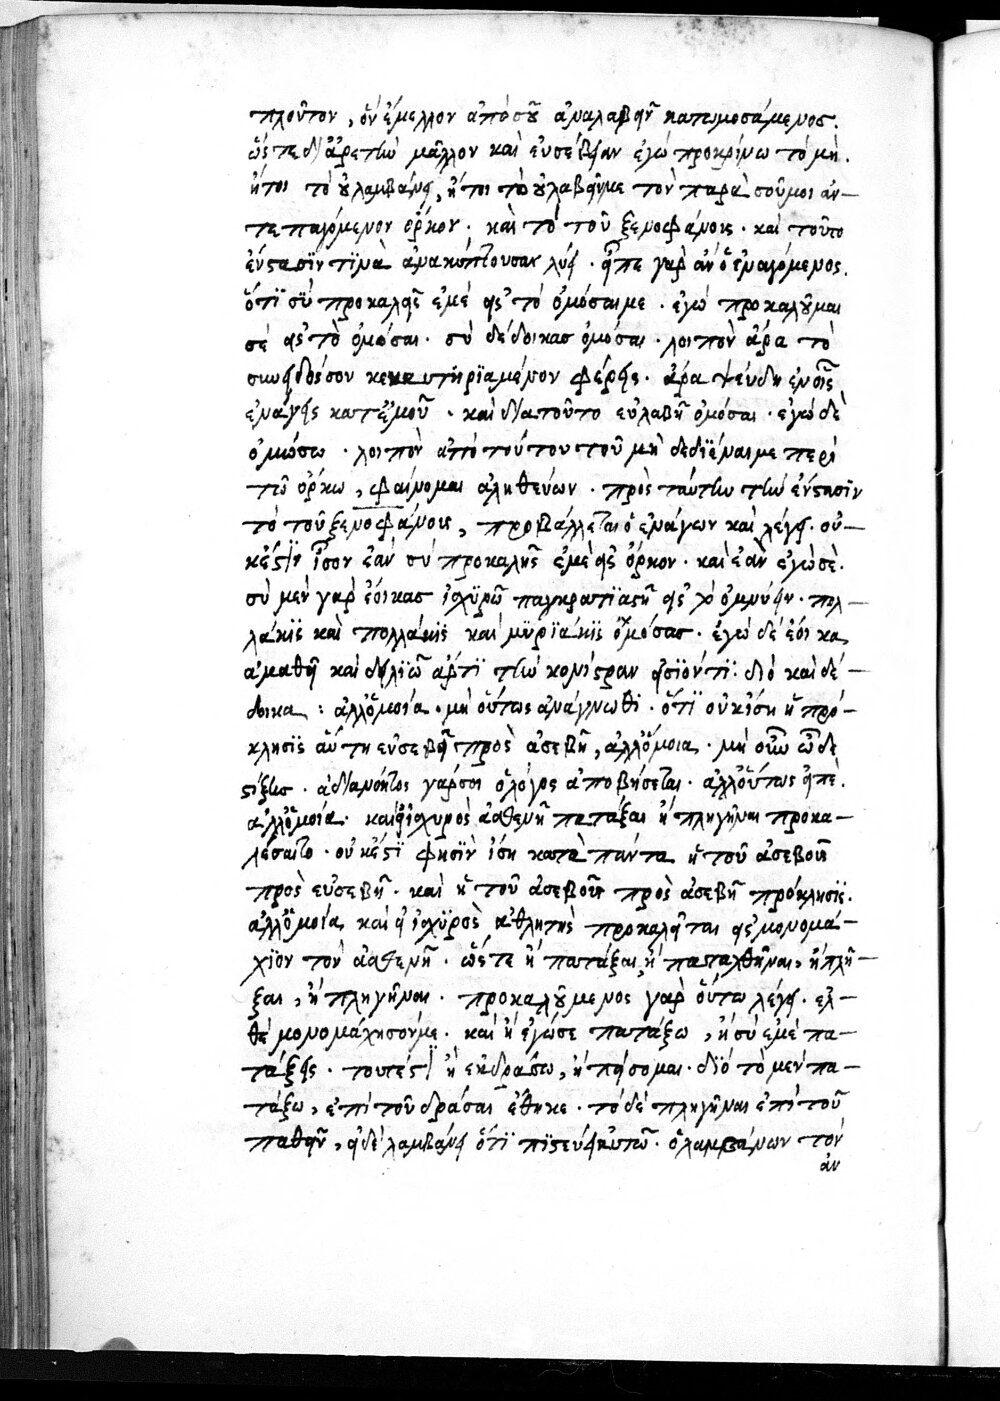 πλοῦτον, ὃν ἔμελλον ἀπὸ σοῦ ἀναλαβεῖν κατομοσάμενος.
ὥστε δι' ἀρετὴν μᾶλλον καὶ εὐσέβειαν ἐγὼ προκρίνω τὸ μὴ.
ἤτοι τὸ οὐ λαμβάνειν, ἤτοι τὸ οὐ λαβεῖν με τὸν παρὰ σοῦ μοι ἀν–
τεπαγόμενον ὅρκον. καὶ τὸ τοῦ ξενοφάνους. καὶ τοῦτο
ἔνστασϊν τϊνὰ ἀνακύπτουσαν λύει. εἶπε γὰρ ἂν ὁ ἐναγόμενος.
ὅτϊ σϋ προκαλεῖς ἐμὲ εἰς τὸ ὀμόσαι με. ἐγὼ προκαλοῦμαι
σὲ εἰς τὸ ὀμόσαι. σὺ δέδοικας ὀμόσαι. λοιπὸν ἄρα τὸ
συνειδός σου κεκαυτηρϊαμένον φέρεις. ἄρα ψευδῆ ἐν οἷς
ἐνάγεις κατ' ἐμοῦ. καὶ διατοῦτο εὐλαβῇ ὀμόσαι. ἐγὼ δὲ
ὀμόσω. λοιπὸν ἀπὸ τούτου τοῦ μὴ δεδϊέναι με περὶ
τῶ ὅρκω, φαίνομαι ἀληθεύων. πρὸς ταύτην τὴν ἔνστασϊν
τὸ τοῦ ξενοφάνους, προβάλλεται ὁ ἐνάγων καὶ λέγει. οὐ–
κ ἔστϊν ἴσον ἐὰν σὺ προκαλῇς ἐμὲ εἰς ὅρκον. καὶ ἐὰν ἐγὼ σὲ.
σὺ μὲν γὰρ ἔοικας ἰσχϋρῶ παγκρατϊαστῇ εἰς τὸ ὀμνύειν. πολ–
λάκϊς καὶ πολλάκϊς καὶ μϋρϊάκϊς ὀμόσας. ἐγὼ δὲ ἔοικα
ἀμαθεῖ καὶ δειλϊῶ ἄρτϊ τὴν κονίστραν εἰσϊόντϊ. διὸ καὶ δέ–
δοικα: ἀλλ' ὁμοία. μὴ οὕτως ἀνάγνωθϊ. ὅτϊ οὐκ ἴση ἡ πρό–
κλησϊς αὕτη εὐσεβεῖ πρὸς ἀσεβῆ, ἀλλ' ὅμοια. μὴ οὖν ὧδε
στίξῃς. ἀδιανόητος γάρ σοι ὁ λόγος ἀποβήσεται. ἀλλ' οὕτως εἰπὲ.
ἀλλ' ὁμοία. καὶ εἰ ἰσχυρὸς ἀσθενῆ πατάξαι ἢ πληγῆναι προκα–
λέσαιτο. οὐκ ἔστϊ φησϊν ἴση κατὰ πάντα ἡ τοῦ ἀσεβοῦς
πρὸς εὐσεβῆ. καὶ ἡ τοῦ ἀσεβοῦς πρὸς ἀσεβῆ πρόκλησϊς.
ἀλλ' ὁμοία καὶ εἰ ἰσχϋρὸς ἀθλητὴς προκαλεῖται εἰς μονομα–
χϊον τὸν ἀσθενῆ. ὥστε ἢ πατάξαι, ἢ παταχθῆναι, ἢ πλῆ–
ξαι, ἢ πληγῆναι. προκαλούμενος γὰρ οὕτω λέγει. ἐλ–
θὲ μονομάχησόν με. καὶ ἢ ἐγώ σε πατάξω, ἢ σὺ ἐμὲ πα–
τάξεις. τουτέστϊν ἢ ἐκδράσω, ἢ πείσομαι. δϊὸ τὸ μὲν πα–
τάξω, ἐπὶ τοῦ δρᾶσαι ἔθηκε. τὸ δὲ πληγῆναι ἐπὶ τοῦ
παθεῖν, εἰ δὲ λαμβάνει ὅτϊ πϊστεύει αὐτῶ. ὁ λαμβάνων τὸν
ἀν